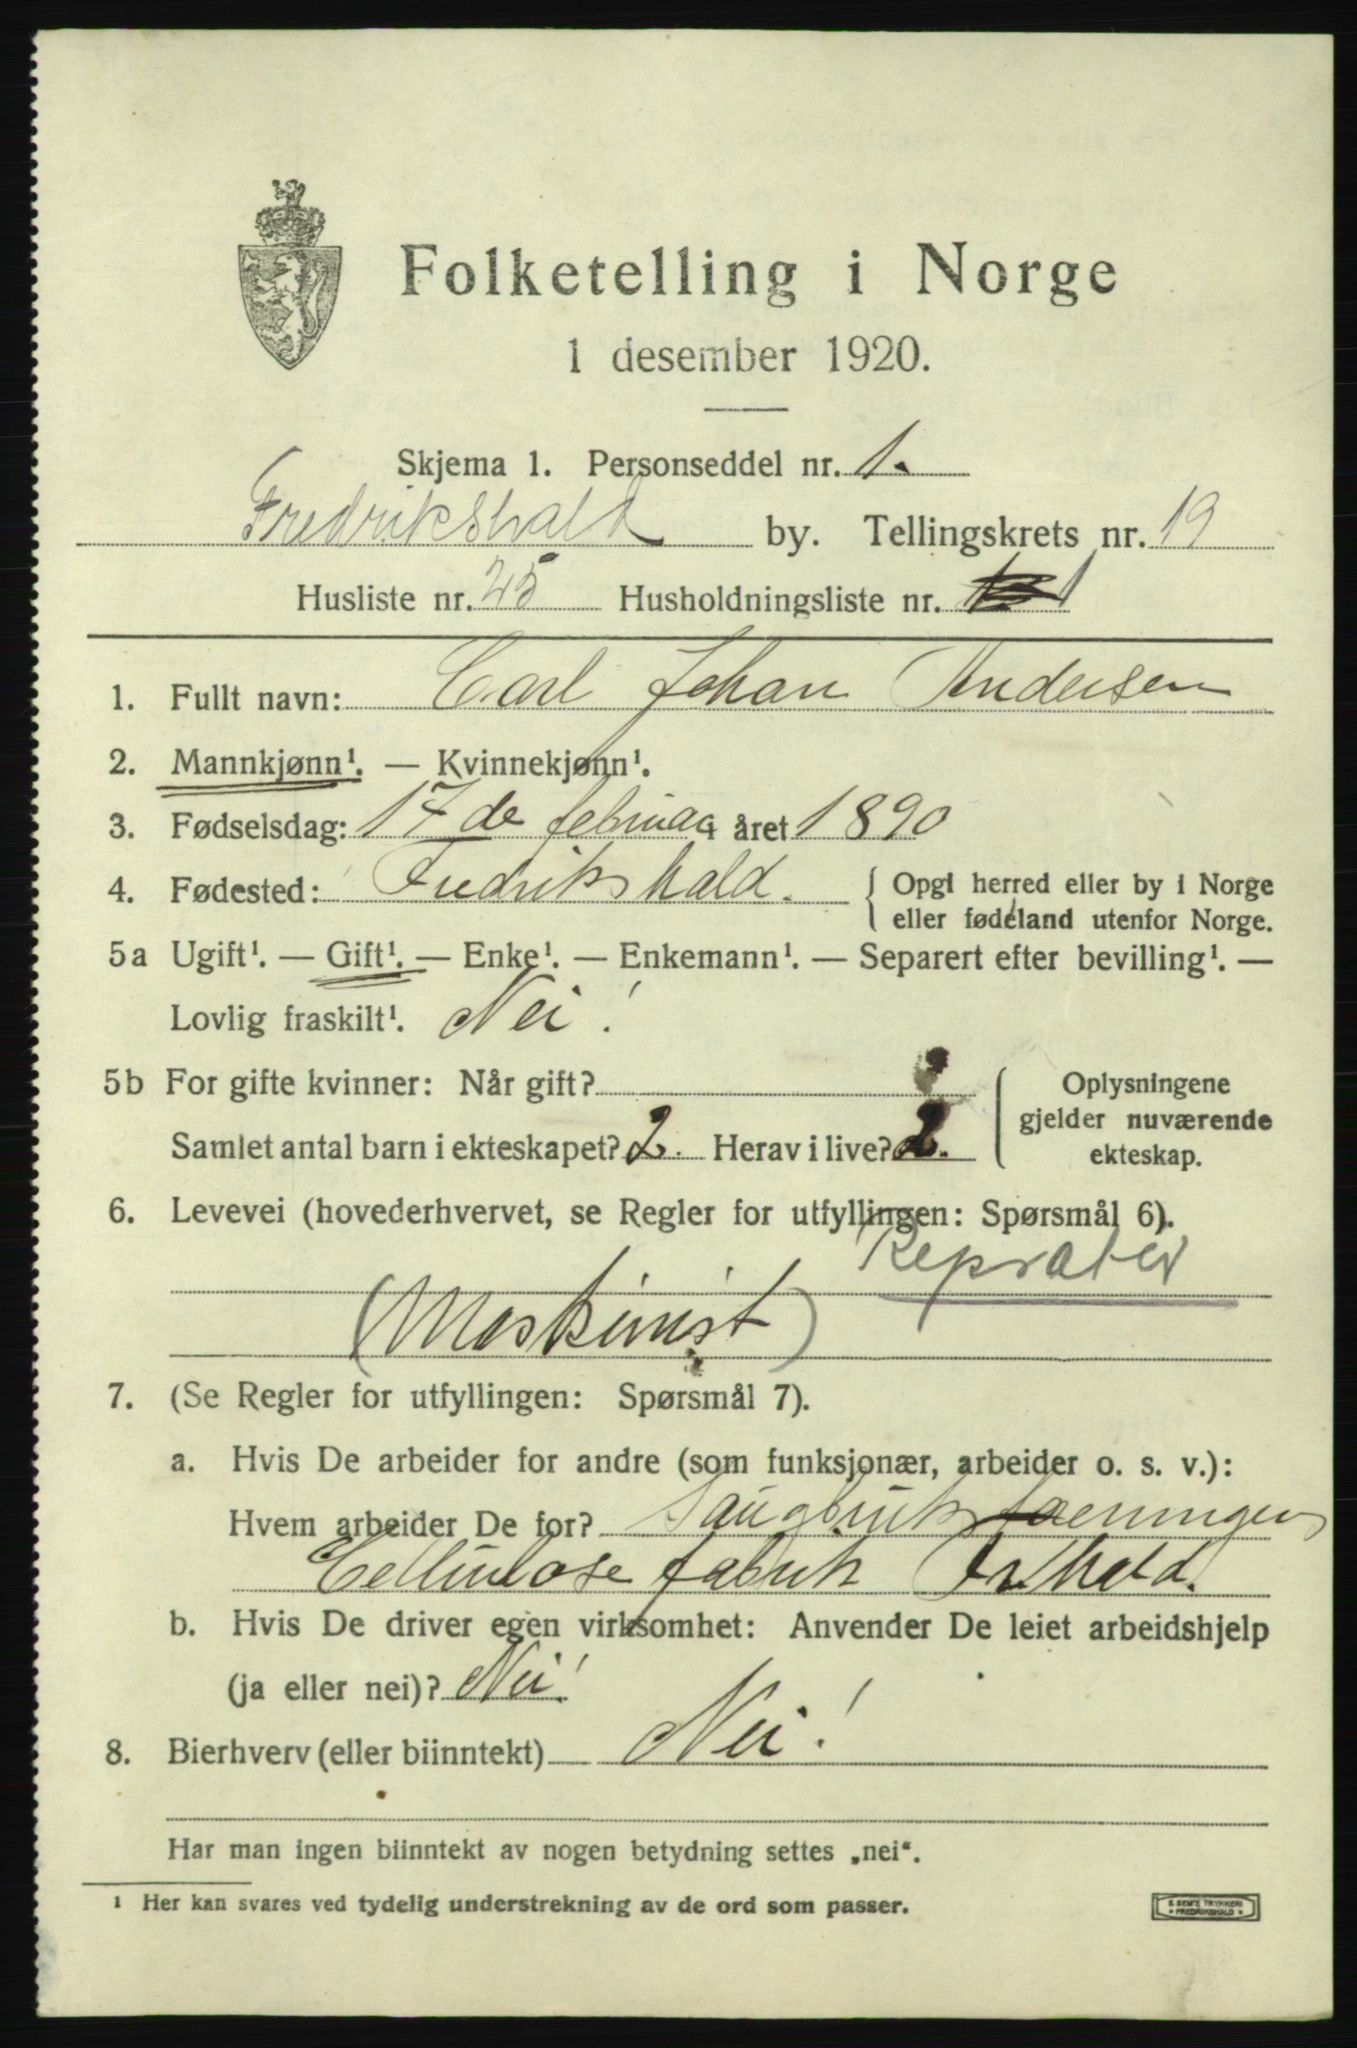 Folketelling i Norge
1 desember 1920.
Skjema 1. Personseddel nr. 1.
Fredrikshald by. Tellingskrets nr. 19
Husliste nr. 25 Husholdningsliste nr. 1
1. Fullt navn: Carl Johan Andersen
2. Mannkjønn¹. — Kvinnekjønn¹.
3. Fødselsdag: 17de februar året 1890
4. Fødested: Fredrikshald. { Opgi herred eller by i Norge
eller fødeland utenfor Norge.
5a Ugift¹. — Gift¹. — Enke¹. — Enkemann¹. — Separert efter bevilling¹. —
Lovlig fraskilt¹. Nei!
5b For gifte kvinner: Når gift?
Samlet antal barn i ekteskapet? 2. Herav i live? 2.
Oplysningene
gjelder nuværende
ekteskap.
6. Levevei (hovederhvervet, se Regler for utfyllingen: Spørsmål 6).
(Maskinist)
7. (Se Regler for utfyllingen: Spørsmål 7).
a. Hvis De arbeider for andre (som funksjonær, arbeider o. s. v.):
Hvem arbeider De for? Saugbruksforeningens
Cellulose fabrik Fr.hald.
b. Hvis De driver egen virksomhet: Anvender De leiet arbeidshjelp
(ja eller nei)? Nei!
8. Bierhverv (eller biinntekt) Nei!
Har man ingen biinntekt av nogen betydning settes „nei“.
¹ Her kan svares ved tydelig understrekning av de ord som passer.